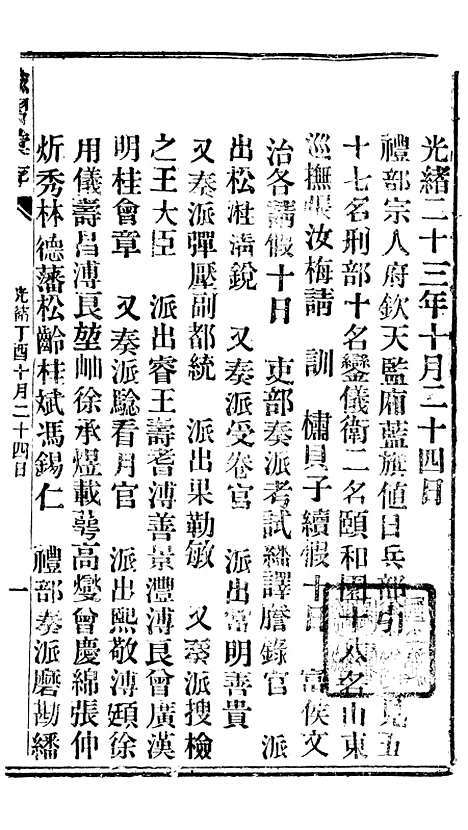 光緒二十三年十月二十四日
禮部宗人府欽天監廂藍旗値日兵部引見五
十七名刑部十名鑾儀衛二名頤和園十八名山東
巡撫張汝梅請　訓　橚貝子續假十日　富侯文
治各請假十日　吏部奏派考試繙譯謄錄官　派
出松溎清銳　又奏派受卷官　派出富明善貴
又奏派彈壓副都統　派出果勒敏　又奏派搜檢
之王大臣　派出睿王壽耆溥善景灃溥良曾廣漢
明桂會章　又奏派騐看月官　派出熙敬溥頲徐
用儀壽昌溥良堃岫徐承煜載萼高燮曾慶綿張仲
炘秀林德藩松齡桂斌馮錫仁　禮部奏派磨勘繙
光緒丁酉十月二十四日
一